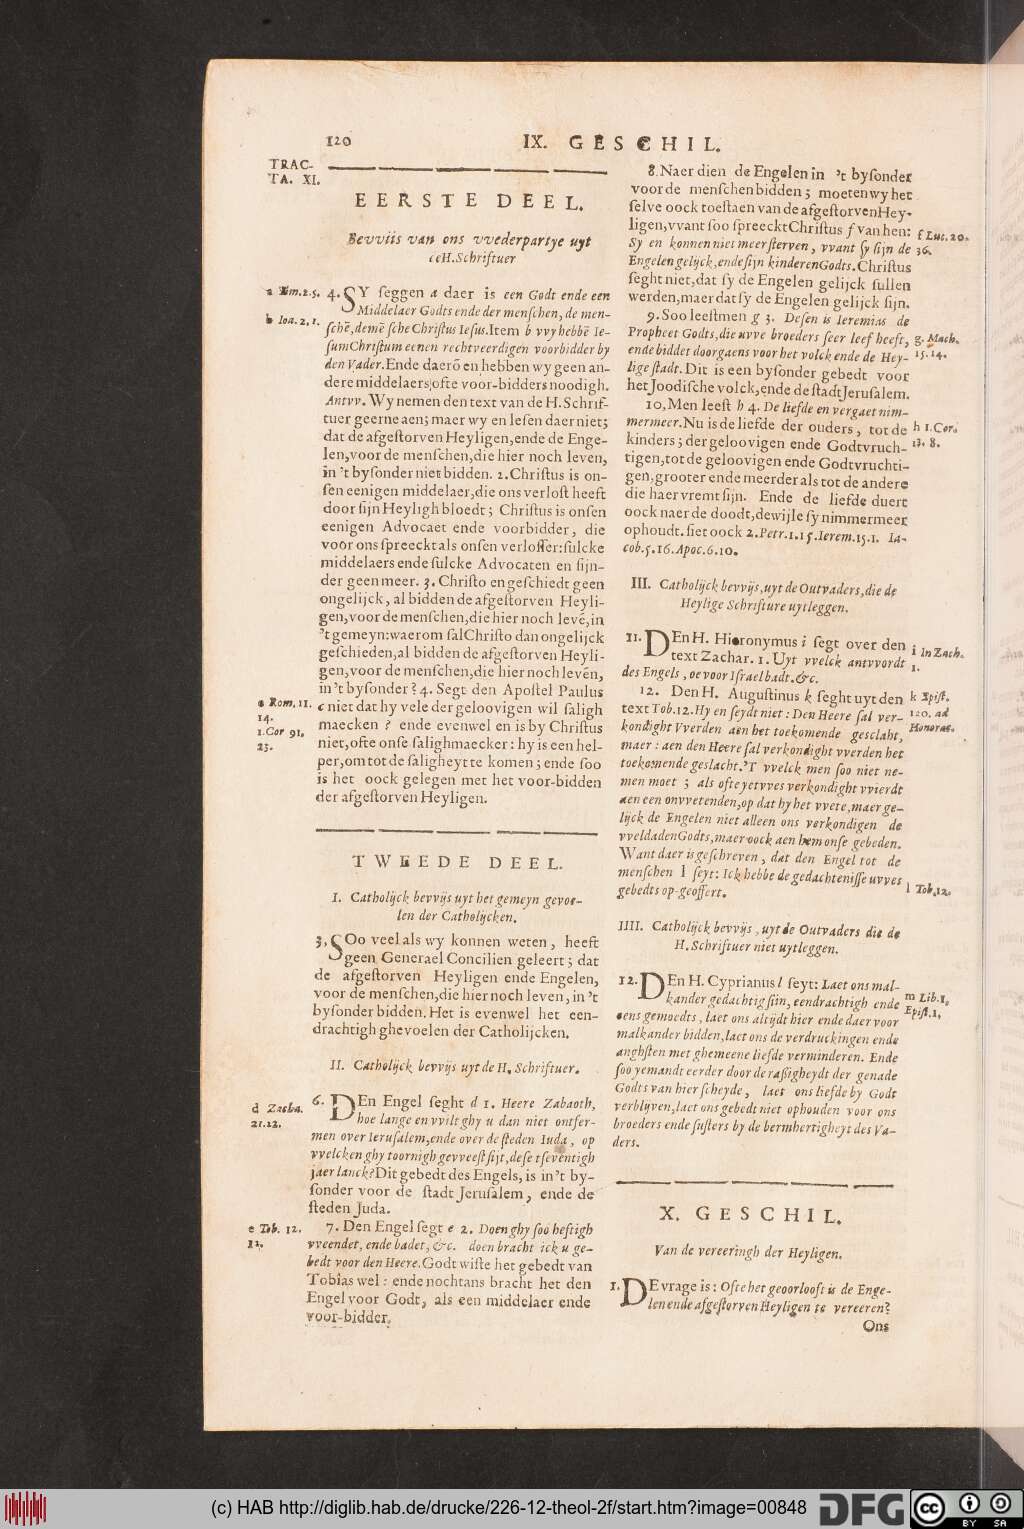 120
IX. GESCHIL.
TRAC-
TA. XI.
EERSTE DEEL.
Bevviis van ons vvederpartye uyt
H.Schriftuer
a Tim.2.5.
b Ioa.2,1.
4. SY ſeggen a daer is een Godt ende een
Middelaer Godts ende der menſchen, de men-
ſchē,demē ſche Chriſtus Ieſus.Item b vvy hebbē Ie-
ſum Chriſtum eenen rechtveerdigen voorbidder by
den Vader.Ende daerō en hebben wy geen an-
dere middelaers;ofte voor-bidders noodigh.
Antvv. Wy nemen den text van de H.Schrif-
tuer geerne aen; maer wy en leſen daer niet;
dat de afgeſtorven Heyligen,ende de Enge-
len,voor de menſchen,die hier noch leven,
in 't byſonder niet bidden. 2.Chriſtus is on-
ſen eenigen middelaer,die ons verloſt heeft
door ſijn Heyligh bloedt; Chriſtus is onſen
eenigen Advocaet ende voorbidder, die
voor ons ſpreeckt als onſen verloſſer:ſulcke
middelaers ende ſulcke Advocaten en ſijn-
der geen meer. 3. Chriſto en geſchiedt geen
ongelijck, al bidden de afgeſtorven Heyli-
gen,voor de menſchen,die hier noch levē,in
't gemeyn:waerom ſal Chriſto dan ongelijck
geſchieden,al bidden de afgeſtorven Heyli-
gen,voor de menſchen,die hier noch levēn,
in 't byſonder? 4. Segt den Apoſtel Paulus
c Rom. 11.
14.
1.Cor 91.
23.
c niet dat hy vele der geloovigen wil ſaligh
maecken? ende evenwel en is by Chriſtus
niet,ofte onſe ſalighmaecker: hy is een hel-
per,om tot de ſaligheyt te komen; ende ſoo
is het oock gelegen met het voor-bidden
der afgeſtorven Heyligen.
TWEEDE DEEL.
I. Catholijck bevvijs uyt het gemeyn gevoe-
len der Catholijcken.
3. SOo veel als wy konnen weten, heeft
geen Generael Concilien geleert; dat
de afgeſtorven Heyligen ende Engelen,
voor de menſchen,die hier noch leven, in 't
byſonder bidden. Het is evenwel het een-
drachtigh ghevoelen der Catholijcken.
II. Catholijck bevvijs uyt de H. Schriftuer.
d Zacha.
21.12.
6. DEn Engel ſeght d 1. Heere Zabaoth,
hoe lange en vvilt ghy u dan niet ontfer-
men over Ieruſalem,ende over de ſteden Iuda, op
vvelcken ghy toornigh gevveeſt ſijt,deſe tſeventigh
jaer lanck? Dit gebedt des Engels, is in 't by-
ſonder voor de ſtadt Jeruſalem, ende de
ſteden Juda.
e Tob. 12.
12.
7. Den Engel ſegt e 2. Doen ghy ſoo heftigh
vveendet, ende badet, &c. doen bracht ick u ge-
bedt voor den Heere.Godt wiſte het gebedt van
Tobias wel: ende nochtans bracht het den
Engel voor Godt, als een middelaer ende
voor-bidder.
8. Naer dien de Engelen in 't byſonder
voor de menſchen bidden; moeten wy het
ſelve oock toeſtaen van de afgeſtorven Hey-
ligen,vvant ſoo ſpreeckt Chriſtus f van hen:
f Luc. 20.
36.
Sy en konnen niet meer ſterven, vvant ſy ſijn de
Engelen gelijck,ende ſijn kinderen Godts.Chriſtus
ſeght niet,dat ſy de Engelen gelijck ſullen
werden,maer dat ſy de Engelen gelijck ſijn.
9. Soo leeſtmen g 3. Deſen is Ieremias de
Propheet Godts,die uvve broeders ſeer leef heeft,
g. Mach.
15.14.
ende biddet doorgaens voor het volck ende de Hey-
lige ſtadt. Dit is een byſonder gebedt voor
het Joodiſche volck,ende de ſtadt Jeruſalem.
10, Men leeſt h 4. De liefde en vergaet nim-
mermeer. Nu is de liefde der ouders, tot de
h 1.Cor.
13. 8.
kinders; der geloovigen ende Godtvruch-
tigen,tot de geloovigen ende Godtvruchti-
gen,grooter ende meerder als tot de andere
die haer vremt ſijn. Ende de liefde duert
oock naer de doodt,dewijle ſy nimmermeer
ophoudt. ſiet oock 2.Petr.1.15.Ierem.15.1. Ia-
cob.5.16.Apoc.6.10.
III. Catholijck bevvijs,uyt de Outvaders,die de
Heylige Schrifture uytleggen.
11. DEn H. Hieronymus i ſegt over den
text Zachar. 1. Uyt vvelck antvvordt
i In Zach.
1.
des Engels, oe voor Iſrael badt.&c.
12. Den H. Auguſtinus k ſeght uyt den
k Epiſt.
120. ad
Honorat.
text Tob.12. Hy en ſeydt niet: Den Heere ſal ver-
kondight Vverden aen het toekomende geslaht,
maer: aen den Heere ſal verkondight vverden het
toekomende geslacht.'T vvelck men ſoo niet ne-
men moet; als ofte yetvves verkondight vvierdt
aen een onvvetenden,op dat hy het vvete,maer ge-
lijck de Engelen niet alleen ons verkondigen de
vveldaden Godts,maer oock aen hem onſe gebeden.
Want daer is geſchreven, dat den Engel tot de
menſchen l ſeyt: Ick hebbe de gedachteniſſe uvves
gebedts op-geoffert.
l Tob.12.
IIII. Catholijck bevvijs, uyt de Outvaders die de
H. Schriftuer niet uytleggen.
12. DEn H. Cyprianus l ſeyt: Laet ons mal-
kander gedachtig ſiin, eendrachtigh ende
m Lib.1,
Epiſt.1.
eens gemoedts, laet ons altijdt hier ende daer voor
malkander bidden,laet ons de verdruckingen ende
anghſten met ghemeene liefde verminderen. Ende
ſoo yemandt eerder door de raßigheydt der genade
Godts van hier ſcheyde, laet ons liefde by Godt
verblijven,laet ons gebedt niet ophouden voor ons
broeders ende ſuſters by de bermhertigheyt des Va-
ders.
X. GESCHIL.
Van de vereeringh der Heyligen.
1. DE vrage is: Ofte het geoorlooft is de Enge-
len ende afgeſtorven Heyligen te vereeren?
Ons
(c) HAB http://diglib.hab.de/drucke/226-12-theol-2f/start.htm?image=00848
DFG
cc
BY SA